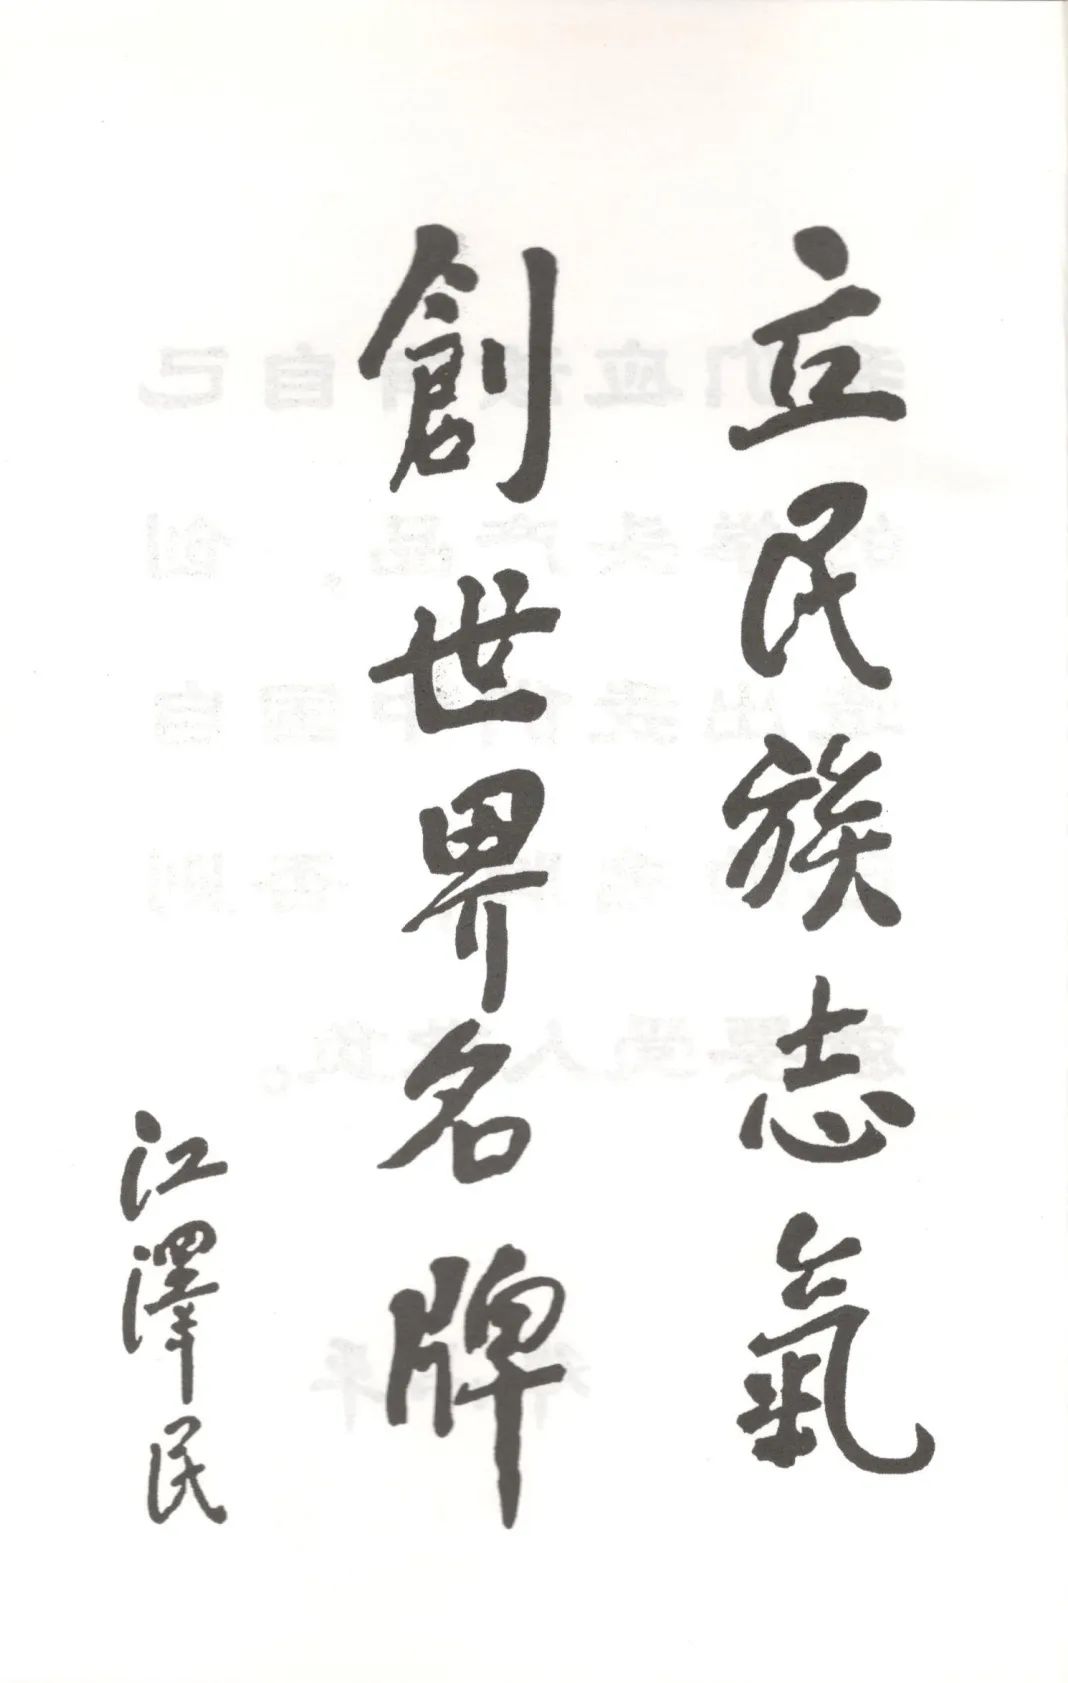 立民族志氣
創世界名牌
江澤民